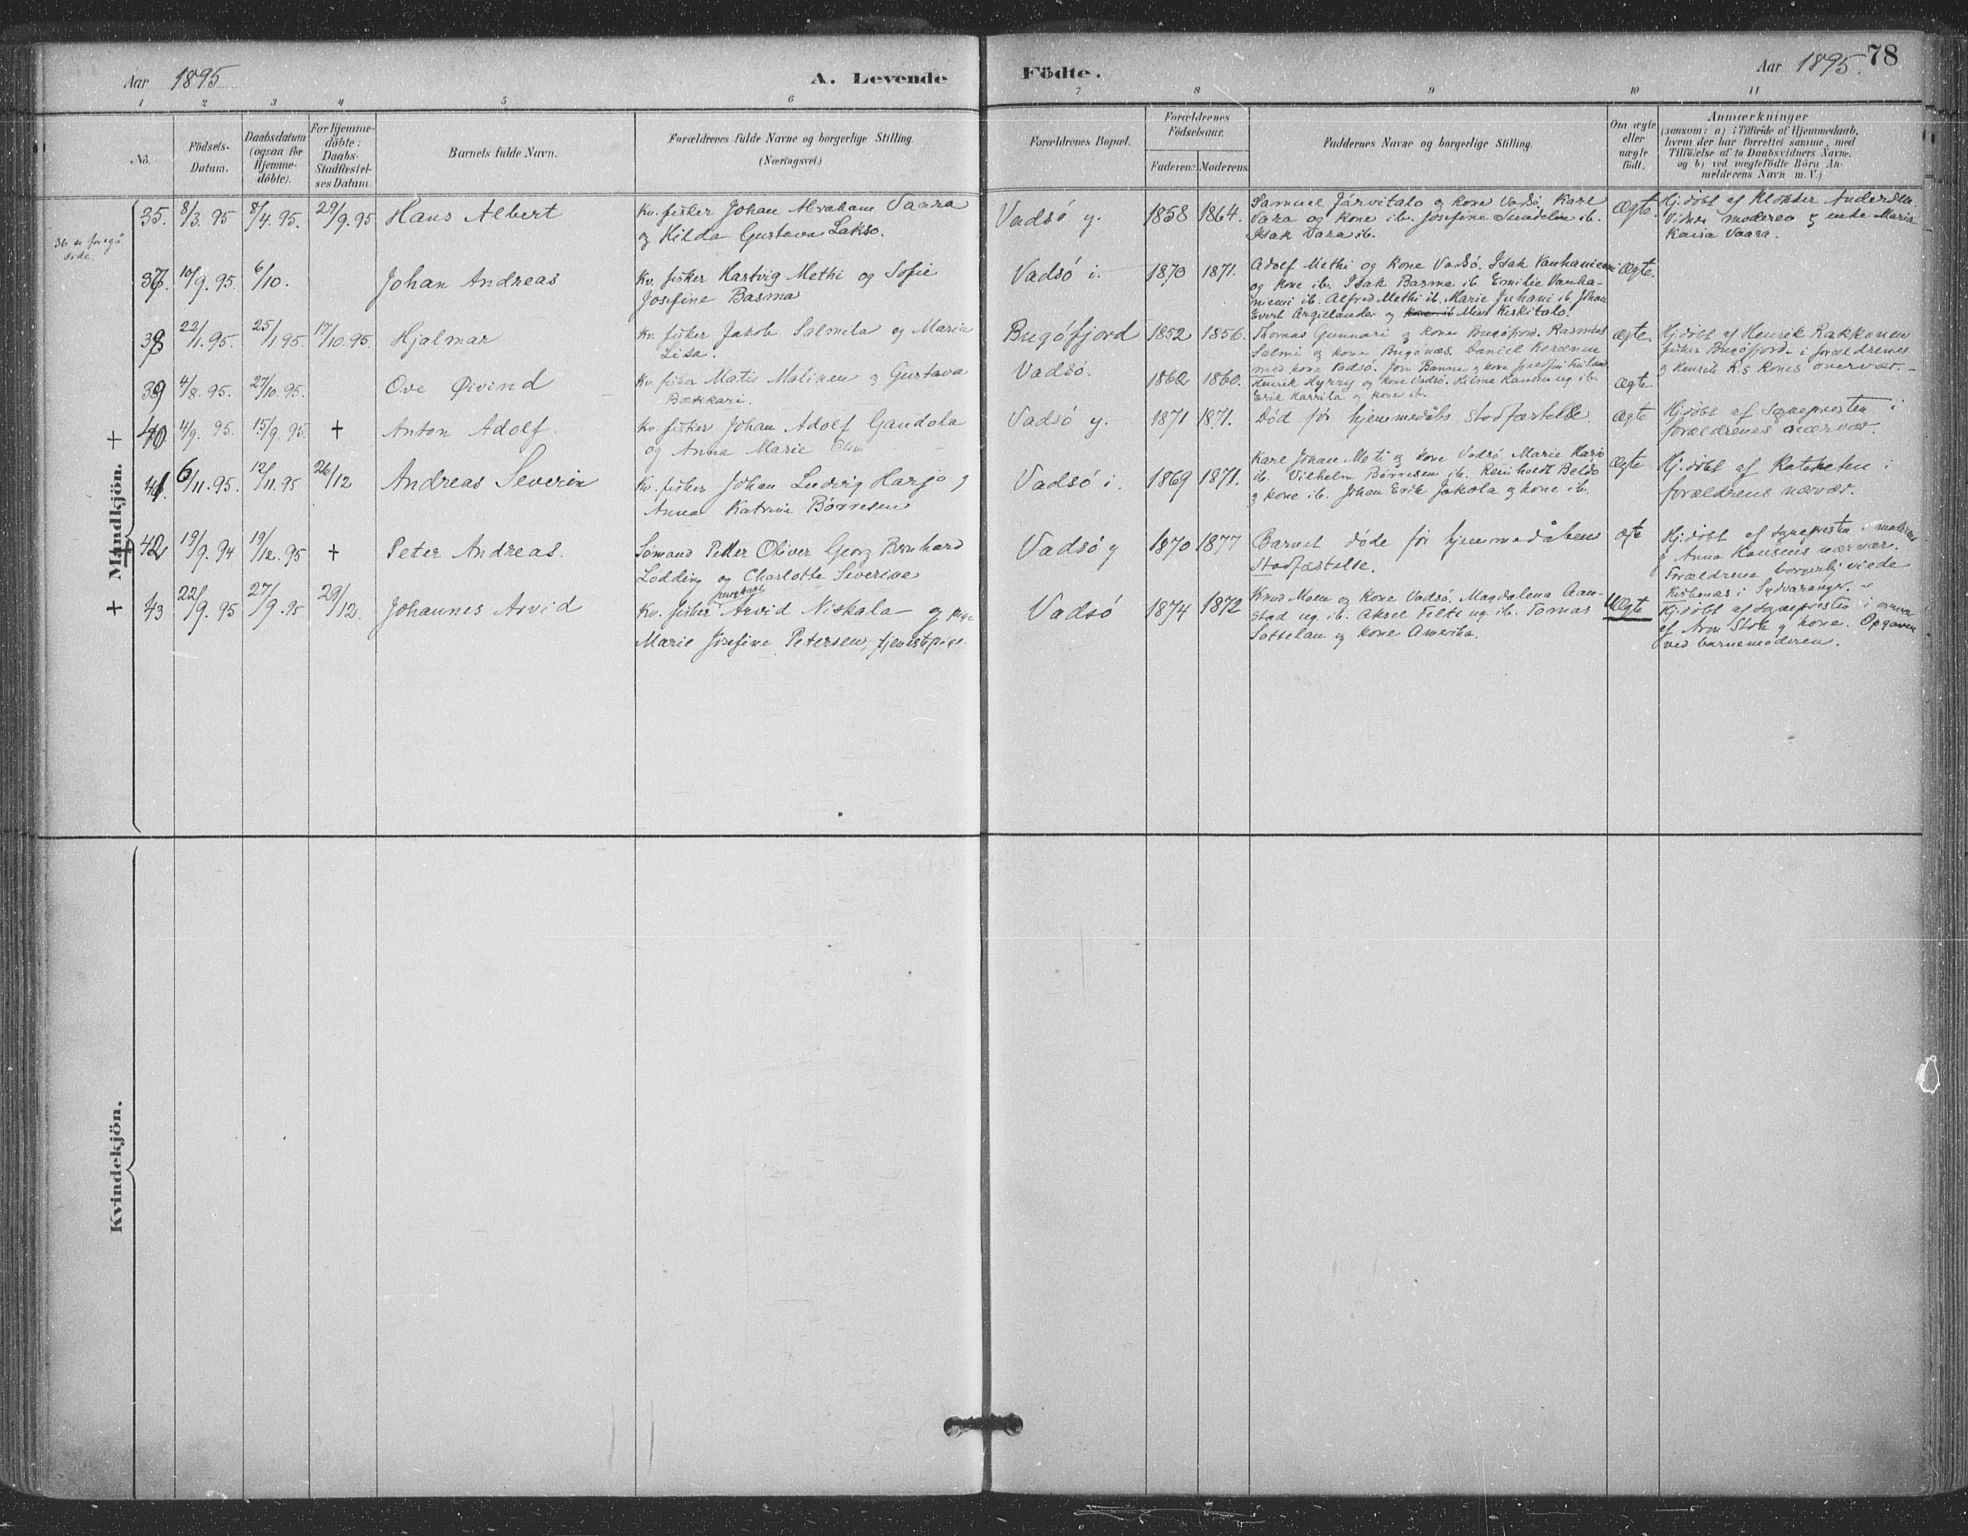 Aar 1895 A. Levende Födte. Aar 1895. 78
1 2 3 4 5 6 7 8 9 10 11
No.
Födsels-
Datum.
Daabsdatum
(ogsaa for
Hjemme-
döbte).
For Hjemme-
döbte:
Daabs-
Stadfæstel-
ses Datum.
Barnets fulde Navn.
Forældrenes fulde Navne og borgerlige Stilling.
(Næringsvei.)
Forældrenes Bopæl.
Forældrenes
Födselsaar.
Faderens Moderens
Faddernes Navne og borgerlige Stilling.
Om ægte
eller
uægte
födt.
Anmærkninger
(saasom: a) i Tilfælde af Hjemmedaab,
hvem der har forrettet samme, med
Tilföielse af to Daabsvidners Navne,
og b) ved uægtefödte Börn An-
melderens Navn m. V.)
Mandkjön.
36 se foregå
side.
35. 8/3. 95 8/4. 95. 29/9. 95 Hans Albert
Kv. fisker Johan Abraham Vaara
og Hilda Gustava Lakso.
Vadsö y. 1858 1864.
Samuel Järvitalo og kone Vadsö, Karl
Vara og kone ib. Josefine Sundelin ib.
Isak Vara ib.
Ægte.
Hj.döbt af Klokker Andersen
Vidne moderen og enke Maria
Kaisa Vaara.
37. 10/9. 95. 6/10. Johan Andreas
Kv. fisker Hartvig Methi og Sofie
Josefine Basma
Vadsö i. 1870 1871.
Adolf Methi og kone Vadsö. Isak Vanhaniemi
og kone ib. Isak Basma ib. Emilie Vanha-
niemi ib. Alfred Methi ib. Marie Juhani ib. Johan
Evert Argielander og kone ib Mina Keskitalo.
Ægte.
38 22/1. 95. 25/1 95 17/10. 95. Hjalmar
Kv. fisker Jakob Salmela og Maria
Lisa.
Bugöfjord 1852 1856.
Thomas Gunnari og kone Bugöfjord. Rasmus
Salmi og kone Bugönæs. Daniel Koranen
med kone Vadsö. Jon Banne og kone
Ægte.
Hj.döbt af Henrik Rakkonen
fisker Bugöfjord i forældrenes
og Henrik R.s kones overvær.
39 4/8. 95. 27/10. 95. Ove Øivind
Kv. fisker Mats Matinen og Gustava
Bækkari.
Vadsö. 1862 1860.
Henrik Hyrry og kone Vadsö. Hilma Hansen ug ib.
Erik Karrila og kone ib.
Ægte.
+ 40 4/9. 95. 15/9. 95. + Anton Adolf.
Kv. fisker Johan Adolf Gandola
og Anna Marie
Vadsö y. 1871 1871.
Död för hjemmedåbs stadfæstelse.
Ægte
Hj.döbt af Sognepresten i
forældrenes nærvær.
41 6/11. 95. 12/11. 95 26/12 Andreas Severin
Kv. fisker Johan Ludvig Harjo og
Anna Katrine Børresen
Vadsö i. 1869 1871.
Karl Johan Meti og kone Vadsö. Marie Harjo
ib. Vilhelm Børresen ib. Reinholdt Beldo
og kone ib. Johan Erik Jokola og kone ib.
Ægte
Hj.döbt af Kateketen i
forældrens nærvær.
+ 42 19/9. 94 19/12. 95 + Peter Andreas.
Sömand Petter Oliver Georg Bernhard
Lödding og Charlotte Severine
Vadsö y 1870 1877
Barnet döde för hjemmedåbens
Stadfæstelse.
ægte
Hj.döbt af Sognepresten i moderens
og Anna Hansens nærvær.
Forældrene borgerlig viede
Kirkenæs i Sydvaranger.
+ 43 22/9. 95 27/9. 95 29/12. Johannes Arvid
ungkarl
Kv. fisker Arvid Niskala og pige
Marie Josefine Petersen, tjenestpige
Vadsö 1874 1872
Knud Moen og kone Vadsö. Magdalena Aan-
stad ug. ib. Aksel Felt ug. ib. Tomas
Sottelan og kone Amerika.
Uægte
Hj.döbt af Sognepresten i overvær
af Aron Stok og kone. Opgaven
ved barnemoderen.
Kvindekjön.